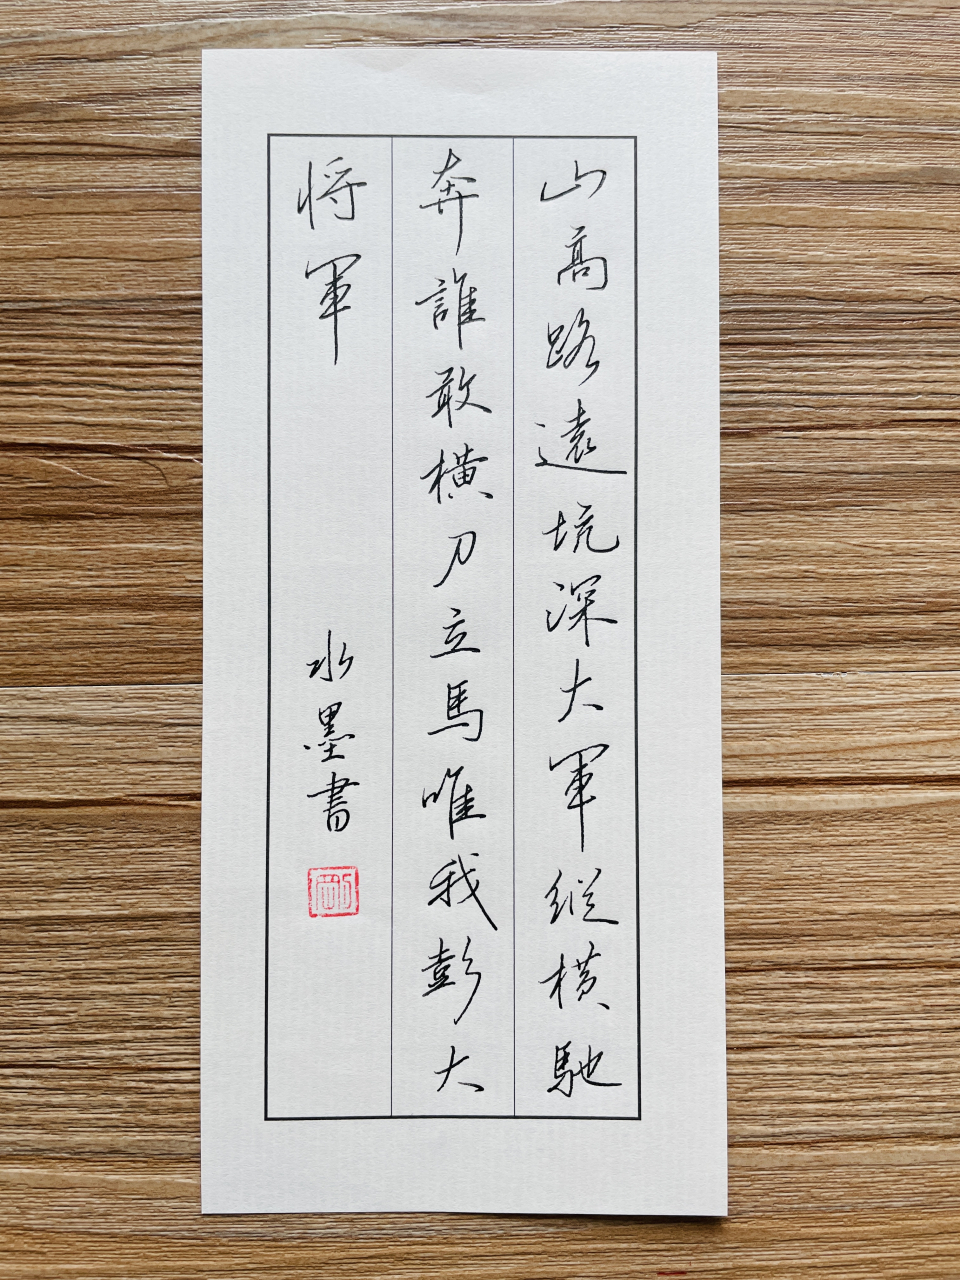 山高路遠坑深大軍縱橫馳
奔誰敢橫刀立馬唯我彭大
将軍
水墨書